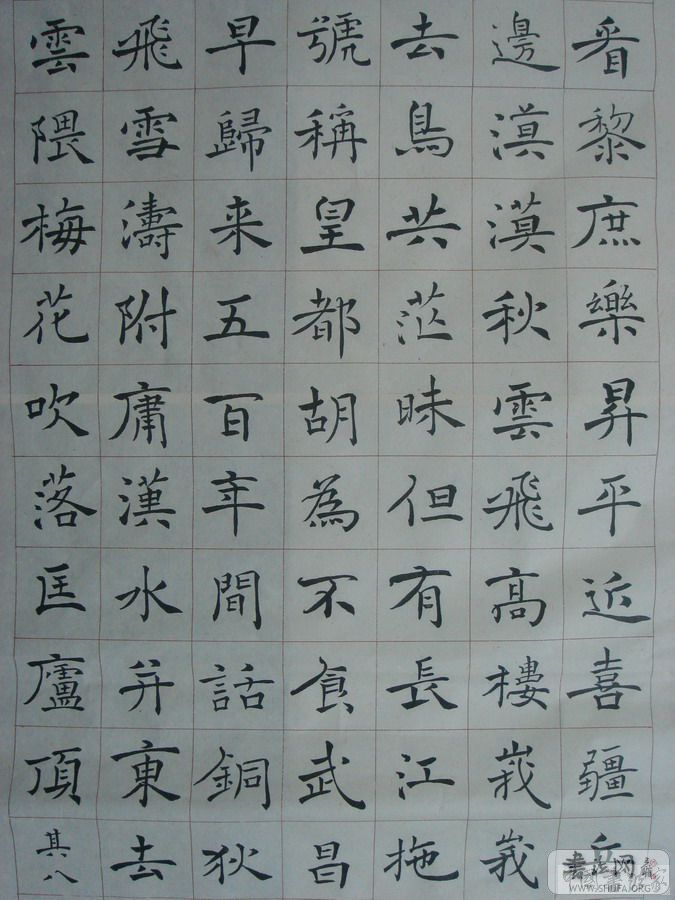 看黎庶樂昇平近喜疆
邊漠漠秋雲飛高樓峩峩
去鳥共茫昧但有長江拖
號稱皇都胡為不食武昌
早歸来五百年間話銅狄
飛雪濤附庸漢水并東去
雲隈梅花吹落匡廬頂其八
書法网
WWW.SHUFA.ORG